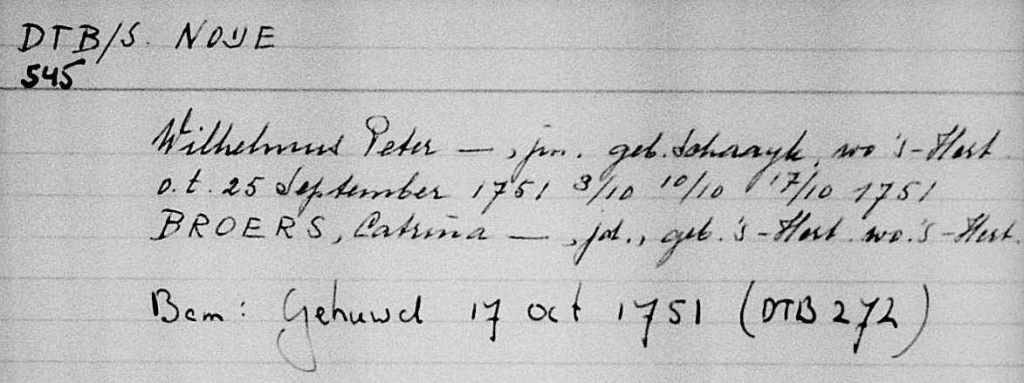 DTB/S. NOIJE
545
Wilhelmus Peter —, jm. geb. Schaayk, wo 's-Hert.
o.t. 25 September 1751 3/10 10/10 17/10 1751
BROERS, Catrina —, jd., geb. 's-Hert. wo. 's-Hert.
Bem: Gehuwd 17 oct 1751 (DTB 272)